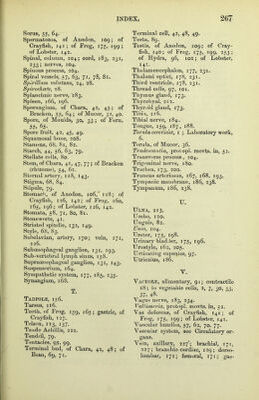 INDEX.
267
Sorus, 55, 64.
Spermatozoa, of Anodon, 109; of
Crayfish, 141; of Frog, 175, 199;
of Lobster, 142.
Spinal, column, 204; cord, 183, 231,
233; nerves, 204.
Spinous process, 204.
Spiral vessels, 57, 63, 71, 78, 81.
Spirillum volutans, 24, 28.
Spirochæte, 28.
Splanchnic nerve, 183.
Spleen, 166, 196.
Sporangium, of Chara, 42, 43; of
Bracken, 55, 64; of Mucor, 32, 40.
Spore, of Moulds, 30, 33; of Fern,
55, 65.
Spore fruit, 42, 45, 49.
Squamosal bone, 208.
Stamens, 68, 81, 82.
Starch, 44, 56, 63, 79.
Stellate cells, 80.
Stem, of Chara, 41, 47, 77; of Bracken
(rhizome), 54, 61.
Sternal artery, 128, 143.
Stigma, 68, 84.
Stipule, 79.
Stomach, of Anodon, 106, 118; of
Crayfish, 126, 142; of Frog, 160,
165, 196; of Lobster, 126, 142.
Stomata, 58, 71, 80, 81.
Stoneworts, 41.
Striated spindle, 132, 149.
Style, 68, 83.
Subclavian, artery, 170; vein, 171,
226.
Subœsophageal ganglion, 131, 193.
Sub-vertebral lymph sinus, 158.
Supraœsophageal ganglion, 131, 143.
Suspensorium, 164.
Sympathetic system, 177, 185, 235.
Synangium, 168.
T.
TADPOLE, 156.
Tarsus, 216.
Teeth, of Frog, 159, 165; gastric, of
Crayfish, 127.
Telson, 113, 137.
Tendo Achillis, 222.
Tendril, 79.
Tentacles, 95, 99.
Terminal bud, of Chara, 42, 48; of
Bean, 69, 71.
Terminal cell, 42, 48, 49.
Testa, 85.
Testis, of Anodon, 109; of Cray-
fish, 140; of Frog, 175, 199, 255;
of Hydra, 96, 102; of Lobster,
142.
Thalamencephalon, 177, 231.
Thalami optici, 178, 231.
Third ventricle, 178, 231.
Thread cells, 97, 101.
Thymus gland, 173.
Thyrohyal, 211.
Thyroid gland, 173.
Tibia, 216.
Tibial nerve, 184.
Tongue, 159, 187, 188.
Torula cerevisiæ, 1; Laboratory work,
4.
Torula, of Mucor, 36.
Tradescantia, protopl. movts. in, 51.
Transverse process, 204.
Trigeminal nerve, 180.
Trachea, 173, 202.
Truncus arteriosus, 167, 168, 193.
Tympanic membrane, 186, 238.
Tympanum, 186, 238.
U.
ULNA, 213.
Umbo, 110.
Unguis, 82.
Unio, 104.
Ureter, 175, 198.
Urinary bladder, 175, 196.
Urostyle, 161, 205.
Urticating capsules, 97.
Utriculus, 186.
V.
VACUOLE, alimentary, 91; contractile
18; in vegetable cells, 1, 7, 30, 33,
37, 48.
Vagus nerve, 183, 234.
Vallisneria, protopl. movts. in, 51.
Vas deferens, of Crayfish, 141; of
Frog, 175, 199; of Lobster, 141.
Vascular bundles, 57, 62, 70, 77.
Vascular system, see Circulatory or-
gans.
Vein, axillary, 227; brachial, 171,
227; branchio-cardiac, 129; dorso-
lumbar, 171; femoral, 171; gas-